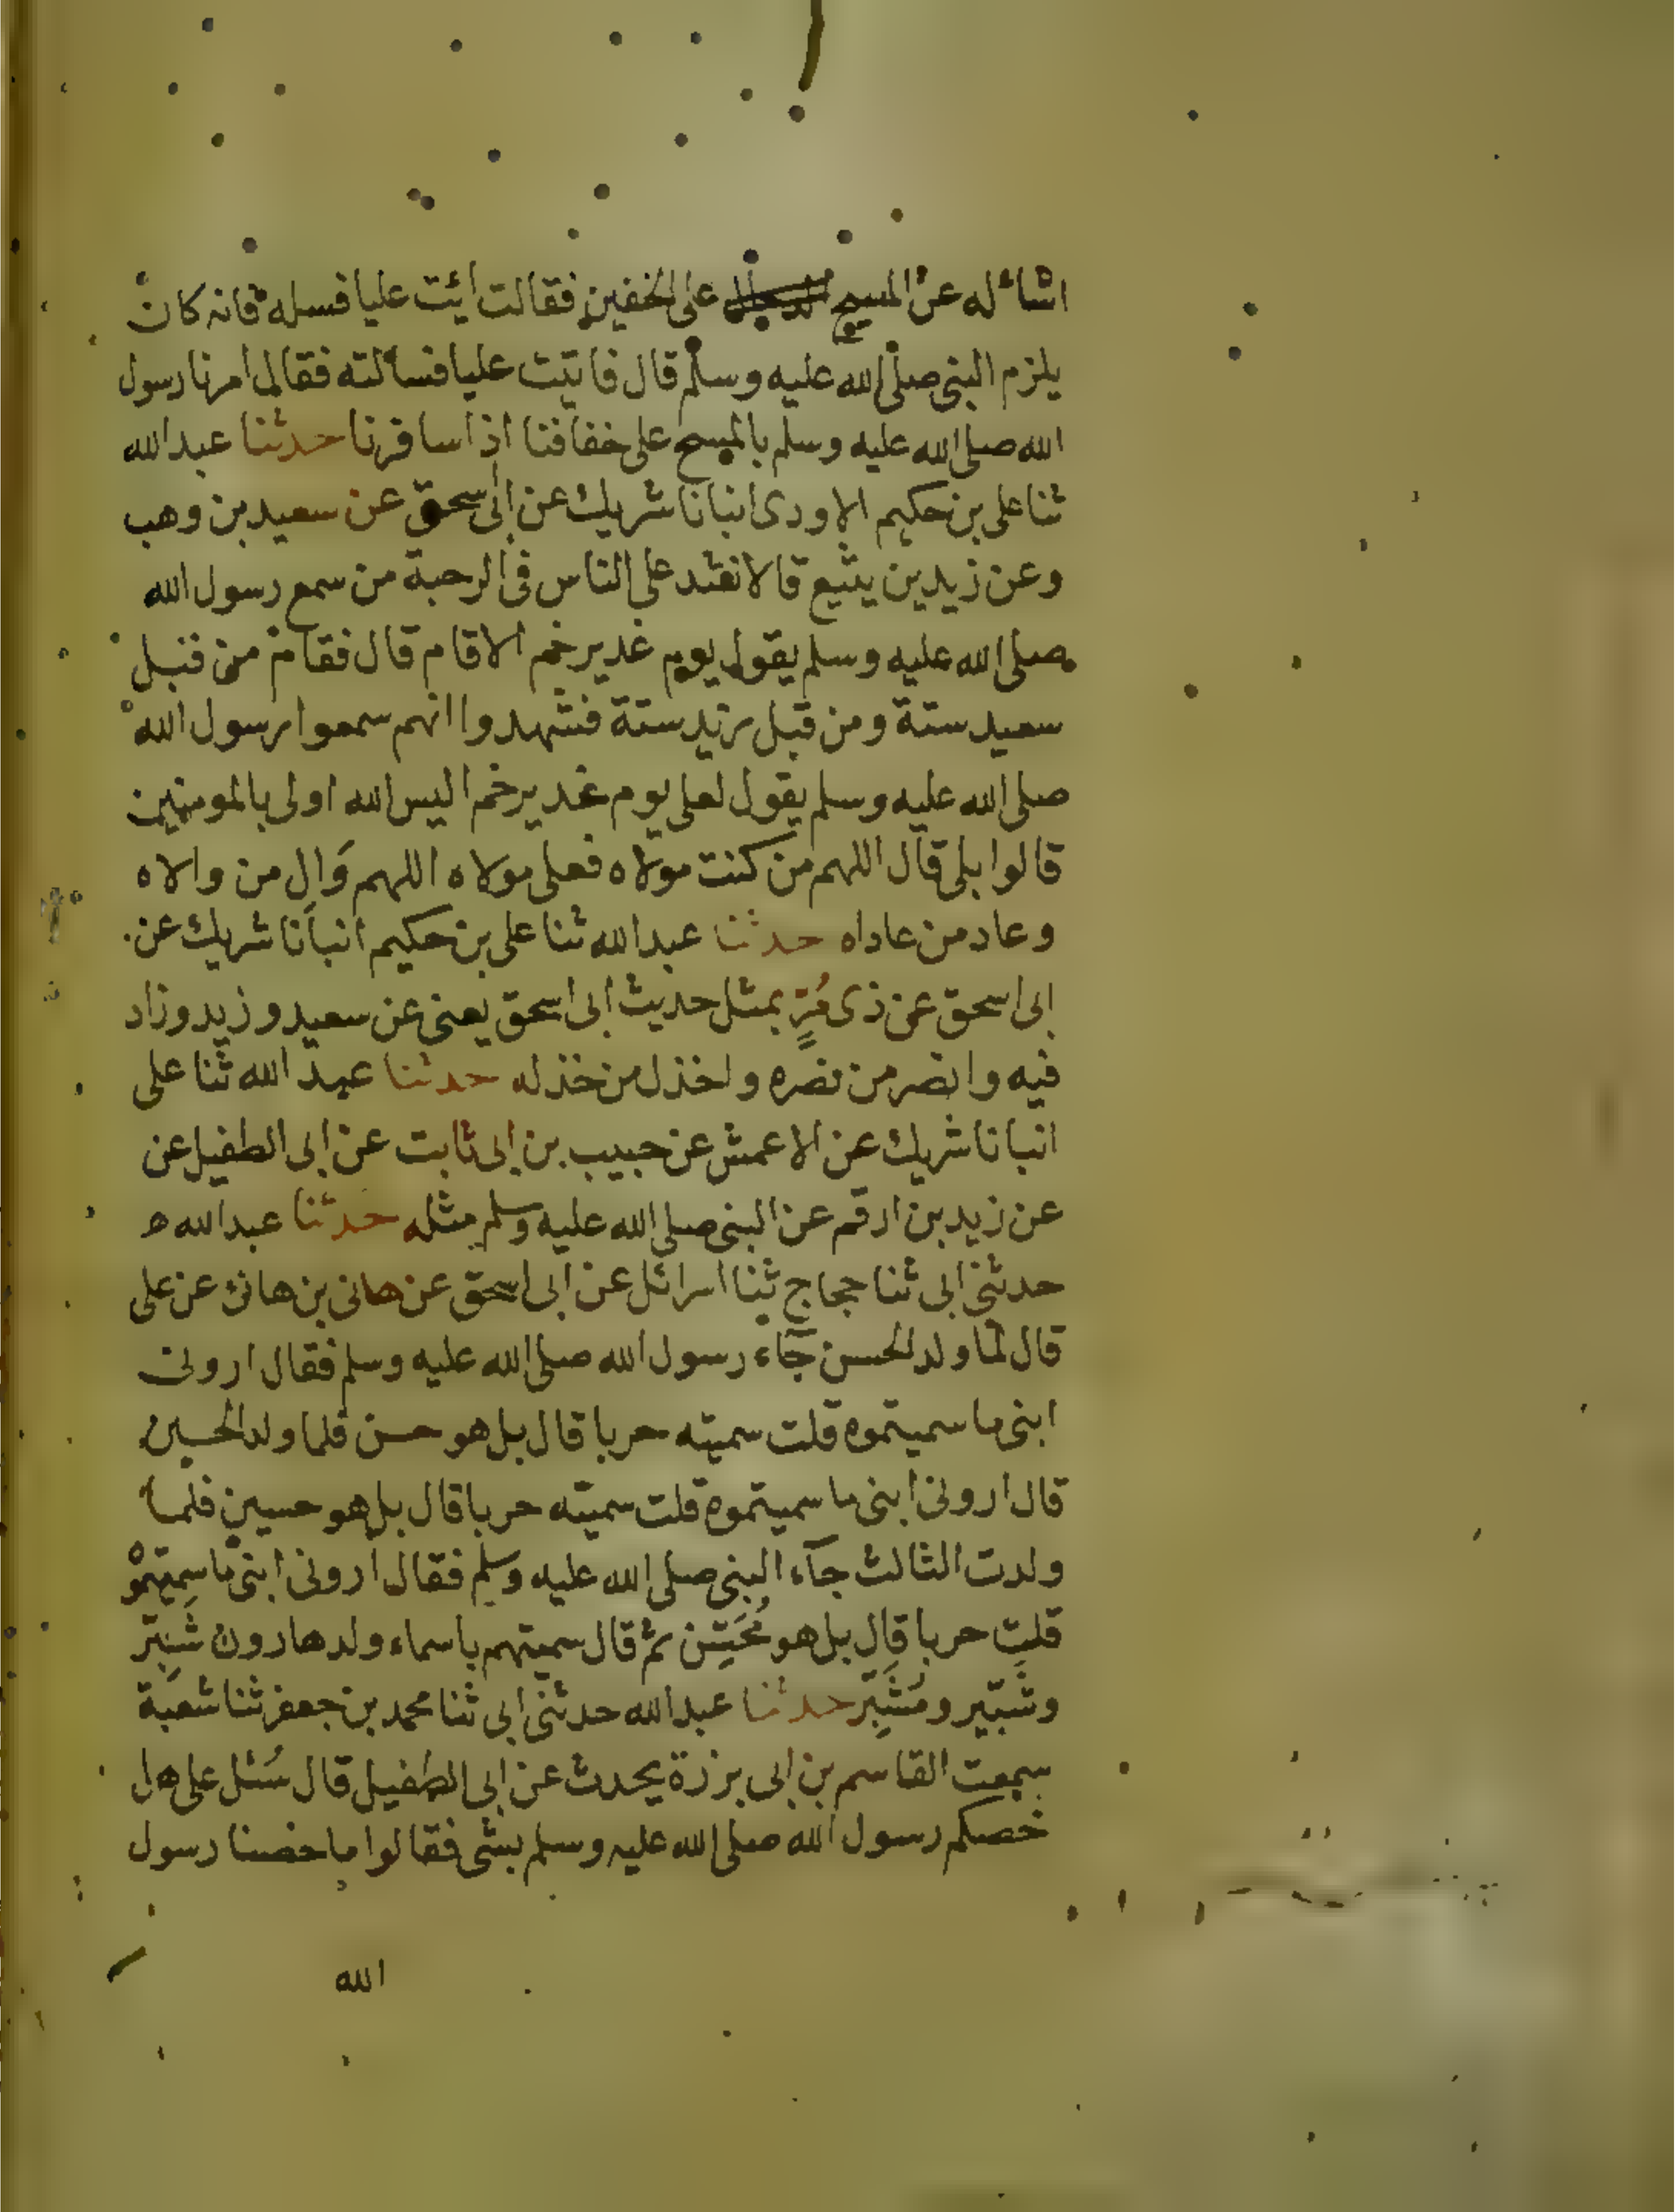 اسأله عن المسيح على الخفين فقالت ائت عليا فسله فانه كان
يلزم النبى صلى الله عليه وسلم قال فاتيت عليا فسألته فقال امرنا رسول
الله صلى الله عليه وسلم بالمسح على خفافنا اذا سافرنا حدثنا عبد الله
ثنا على بن حكيم الاودى انبانا شريك عن ابى سحق عن سعيد بن وهب
وعن زيد بن يثيع قالا نشد على الناس فى الرحبة من سمع رسول الله
صلى الله عليه وسلم يقول يوم غدير خم الا قام قال فقام من قبل
سعيد ستة ومن قبل زيد ستة فشهدوا انهم سمعوا رسول الله
صلى الله عليه وسلم يقول لعلى يوم غدير خم اليس الله اولى بالمومنين
قالوا بلى قال اللهم من كنت مولاه فعلى مولاه اللهم وَالِ من والاه
وعاد من عاداه حدثنا عبد الله ثنا على بن حكيم انبأنا شريك عن
ابى اسحق عن ذى مُرٍّ بمثل حديث ابى اسحق يعنى عن سعيد وزيد وزاد
فيه وانصر من نصره واخذل من خذله حدثنا عبد الله ثنا على
انبانا شريك عن الاعمش عن حبيب بن ابى ثابت عن ابى الطفيل عن
عن زيد بن ارقم عن النبى صلى الله عليه وسلم مثله حدثنا عبد الله ه
حدثنى ابى ثنا حجاج ثنا اسرائل عن ابى اسحق عن هانى بن هانئ عن على
قال لما ولد الحسن جآء رسول الله صلى الله عليه وسلم فقال ارونى
ابنى ما سميتموه قلت سميته حربا قال بل هو حسن فلما ولد الحسين
قال ارونى ابنى ما سميتموه قلت سميته حربا قال بل هو حسين فلما
ولدت الثالث جآء النبى صلى الله عليه وسلم فقال ارونى ابنى ما سميتموه
قلت حربا قال بل هو مُحَسِّن ثم قال سميتهم باسماء ولد هارون شَبَّر
وشَبِّير ومُشَبِّر حدثنا عبد الله حدثنى ابى ثنا محمد بن جعفر ثنا شعبة
سمعت القاسم بن ابى برزة يحدث عن ابى الطفيل قال سُئل على هل
خصكم رسول الله صلى الله عليه وسلم بشى فقالوا ما خصنا رسول
الله